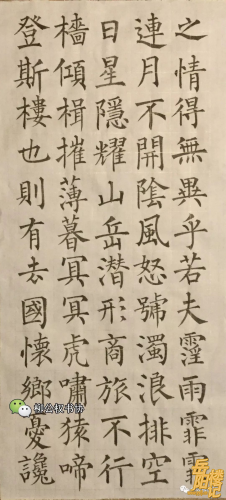 之情得無異乎若夫霪雨霏霏
連月不開陰風怒號濁浪排空
日星隱耀山岳潛形商旅不行
檣傾楫摧薄暮冥冥虎嘯猿啼
登斯樓也則有去國懷鄉憂讒
岳阳楼记
柳公权书协